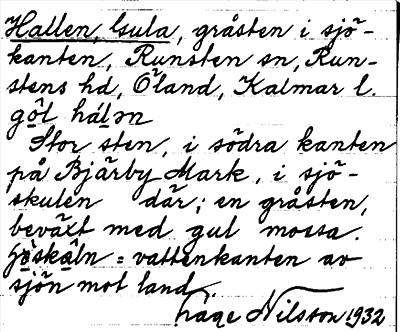 Hallen, Gula, gråsten i sjö-
kanten, Runsten sn, Run-
stens hd, Öland, Kalmar l.
gōl hálən
Stor sten, i södra kanten
på Bjärby Mark, i sjö-
skulen där; en gråsten,
beväxt med gul mossa.
= vattenkanten av
sjön mot land.
Håge Nilsson 1932